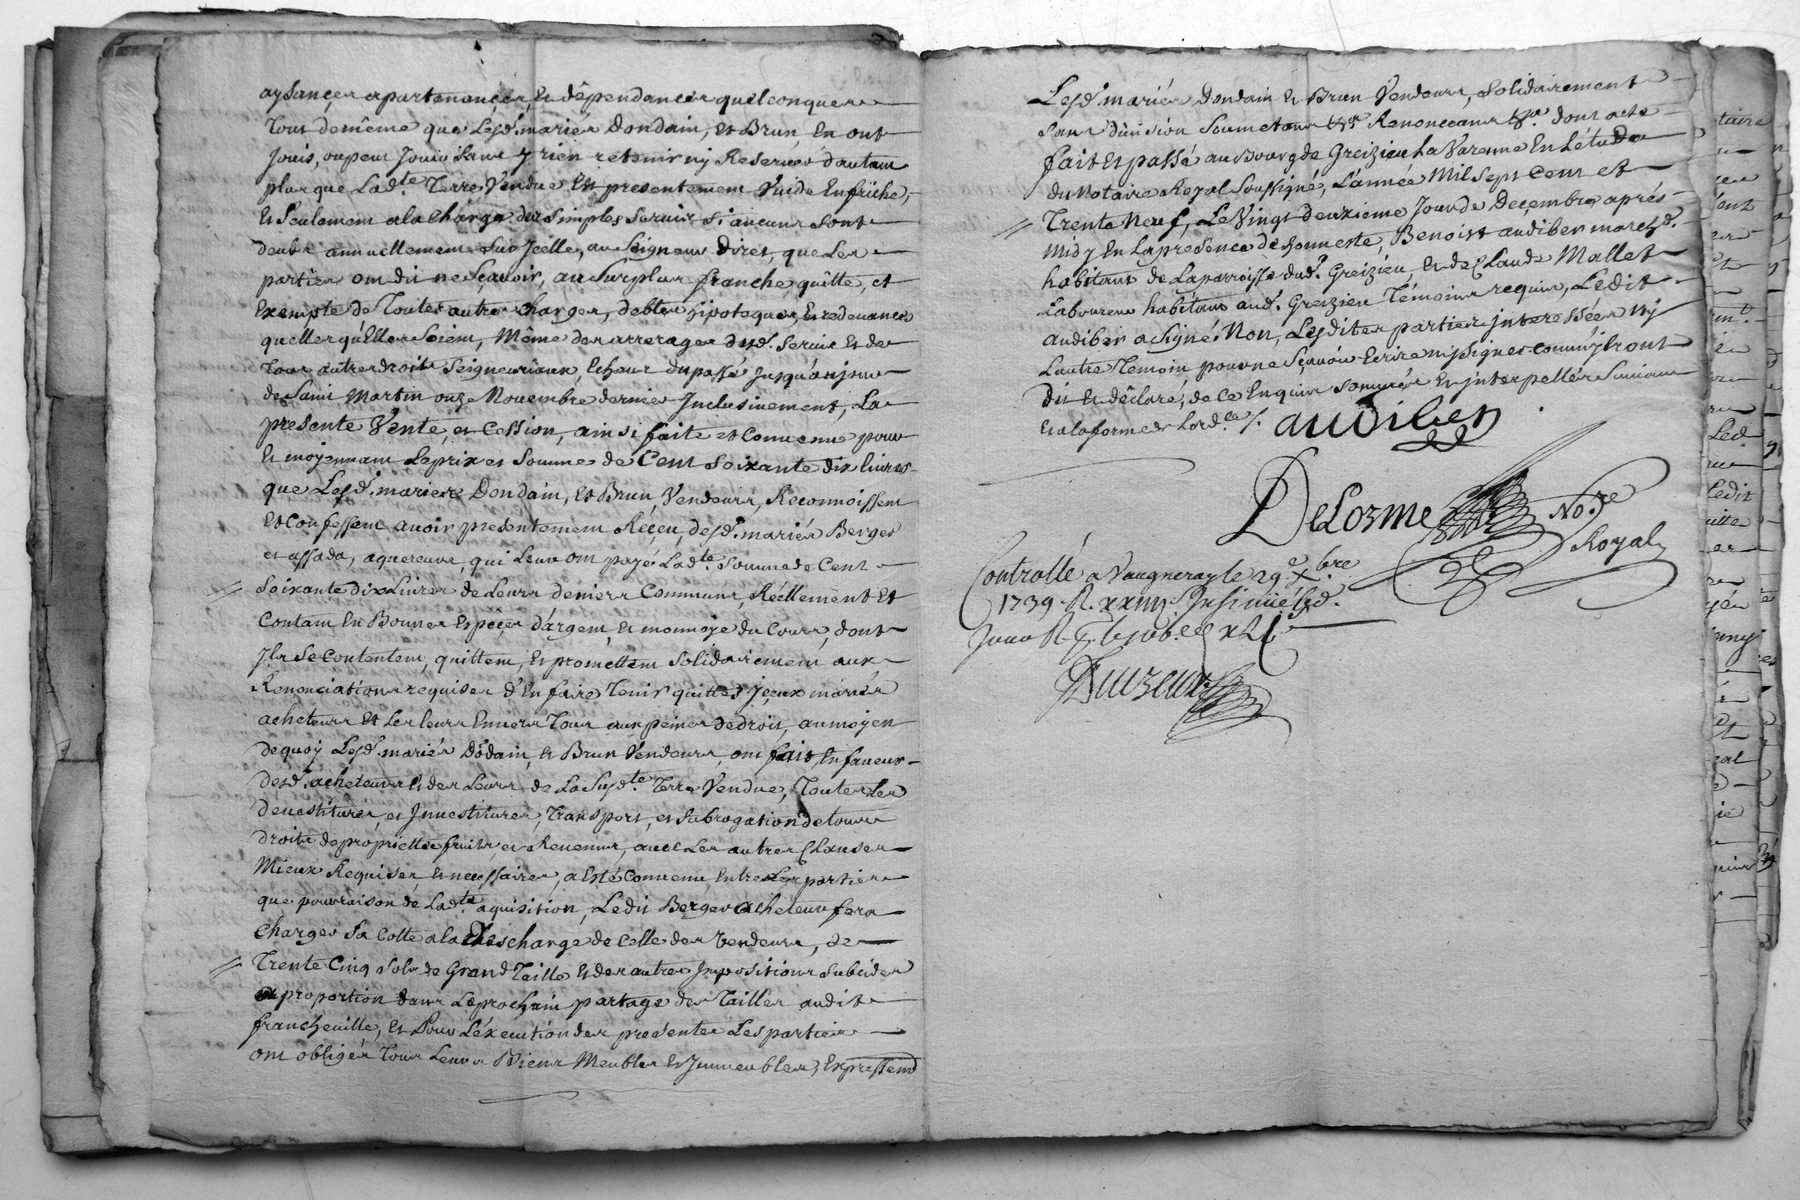 aysances apartenances, et dêpendances quelconques
tout de même que Lesd. mariés Dondain, et Brun, En ont
Joüis, ou peut Joüir sans y rien retenir ny Reserver d'autant
plus que Lad.te Terre Vendue Est presentement Vuide En friche,
et seulement a la charge des simples servis si aucuns sont
deubs annuellement sur Jcelle, au Seigneur direct, que Les
parties ont dit ne sçavoir, au surplus franche, quitte, et
Exempte de Toutes autres charges, debtes hipoteques, et redevances
quelles qu'Elles soient, Même des arrerages desd. servis et de
tous autres droits seigneuriaux, Echeus du passé Jusqu'au jour
de Saint Martin onze Novembre dernier Jnclusivement, La
presente Vente, et Cession, ainsi faite et Convenue pour
Et moyennant Le prix et somme de Cent soixante dix livres
que Lesd. mariés Dondain, et Brun, Vendeurs, Reconnoissent
et Confessent avoir presentement Reçeu, desd. mariés Berger
et assada, aquereurs, qui Leur ont payé Lad.te somme de Cent
soixante dix Livres de Leurs deniers Communs, Réellement Et
Contant En Bonnes Espêces d'argent, et monnoye du Cours, dont
Jls se Contentent, quittent, et promettent solidairement aux
Renonciations requises d'En faire Tenir quittes jceux mariés
acheteurs et Les leurs Envers Tous aux peines de droit, au moyen
de quoy Lesd. mariés Dõdain, et Brun Vendeurs, ont fait, En faveur
desd. acheteurs et des Leurs de La Susd.te Terre Vendue, Toutes Les
devestitures, et Jnvestitures, Transport, et subrogation de tous
droits de proprietté fruits, et Revenus, avec Les autres Clauses
Mieux Requises, et necessaires, a Esté Convenu, Entre Les parties
que pour raison de Lad.te aquisition, Ledit Berger acheteur fera
charger sa Cotte a la descharge de Celle des vendeurs, de
Trente Cinq sols de Grand Taille et des autres Jmpositions subsides
a proportion dans Le prochain partage des Tailles audit
francheville, et Pour L'éxecution des presentes Les parties
ont obligés Tous Leurs Biens Meubles et Jmmeubles, Expressemt
Lesd. mariés Dondain et Brun Vendeurs, solidairement
sans division Soumettans Renonceans dont acte
fait Et passé au Bourg de Greizieu La Varenne En L'étude
du Notaire Royal Soussigné, L'année Mil Sept Cent et
Trente Neuf, Le Vingt deuxieme Jour de Decembre aprés
Midy En La presence de honneste, Benoist audiber march.d
habitant de La parroisse dud. Greizieu, et de Claude Mallet
Laboureur habitant aud. Greizieu Témoins requis, Ledit
audiber a signé, Non, Lesdites parties jnteressées ny
L'autre Temoin pour ne sçavoir Ecrire ny signer comm'ils ont
dit et dêclaré, de ce Enquis sommés et jnterpellés suivant
Et a la forme de Lord.ce /. audiber
Delorme No.re
Royal
Controllé a Vaugneray le 29.e Xbre
1739 R. Jnsinüé led.
Jour R.